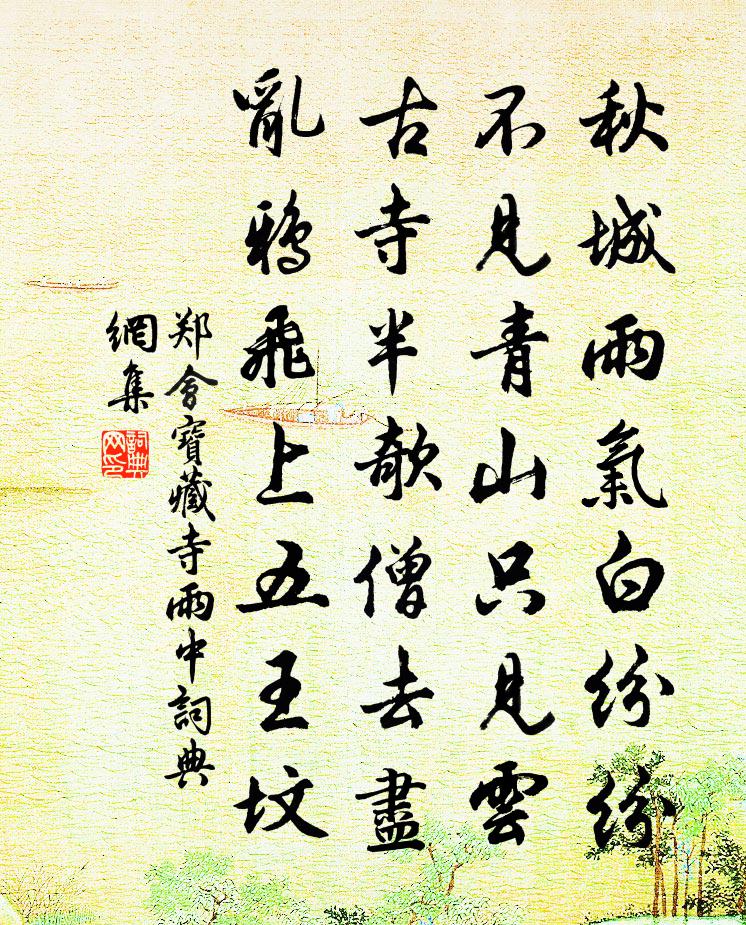 秋城雨氣白紛紛
不見青山只見雲
古寺半欹僧去盡
亂鴉飛上五王坟
郑會寶藏寺雨中詞典
網集
詞典
网印